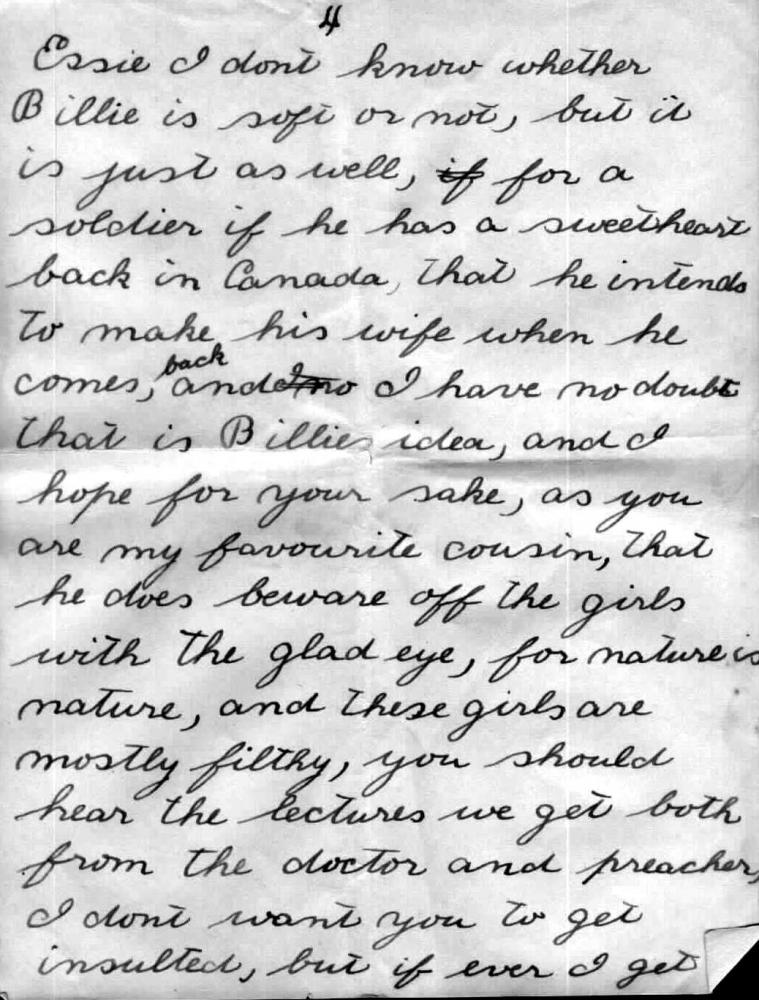 4
Essie I dont know whether
Billie is soft or not, but it
is just as well, if for a
soldier if he has a sweetheart
back in Canada, that he intends
to make his wife when he
back
comes, and I no I have no doubt
that is Billies idea, and I
hope for your sake, as you
are my favourite cousin, that
he does beware off the girls
with the glad eye, for nature is
nature, and these girls are
mostly filthy, you should
hear the lectures we get both
from the doctor and preacher,
I dont want you to get
insulted, but if ever I get